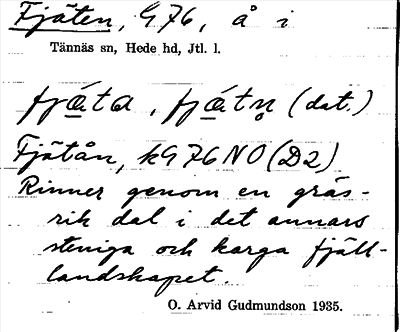 Fjäten, G76, å i
Tännäs sn, Hede hd, Jtl. l.
fjä̱ta, fjä̱tn̥ (dat.)
Fjätån, kG76NO(D2)
Rinner genom en gräs-
rik dal i det annars
steniga och karga fjäll-
landskapet.
O. Arvid Gudmundson 1935.